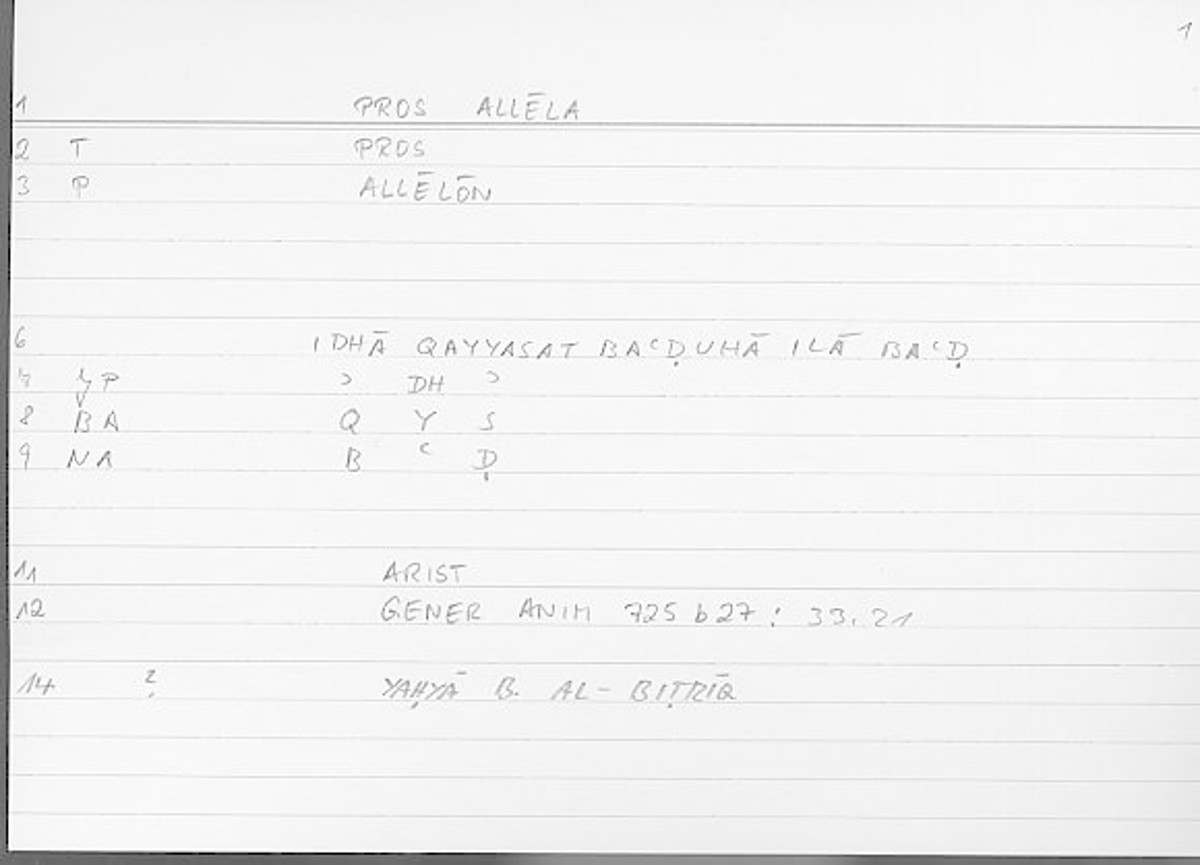 1
1 PROS ALLĒLA
2 T PROS
3 P ALLĒLŌN
6 IDHĀ QAYYASAT BAʿḌUHĀ ILĀ BAʿḌ
P ʾ DH ʾ
8 BA Q Y S
9 NA B ʿ Ḍ
11 ARIST
12 GENER ANIM 725 b27 : 33.21
14 ? YAḤYĀ B. AL-BIṬRĪQ